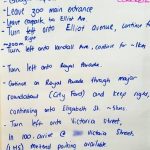 - Leave 300 main entrance
- Leave carpark, to Elliot Ave
- Turn left onto Elliot avenue, continue for
- Turn left onto Randall Ave, continue for ~1km
- Turn left onto Royal Parade.
- Continue on Royal Parade through major
roundabout (City Ford) and keep right,
continuing onto Elizabeth St. ~5kms
- Turn left onto Victoria Street,
In 100. arrive @ Victoria Street,
(LHS) Metered parking available